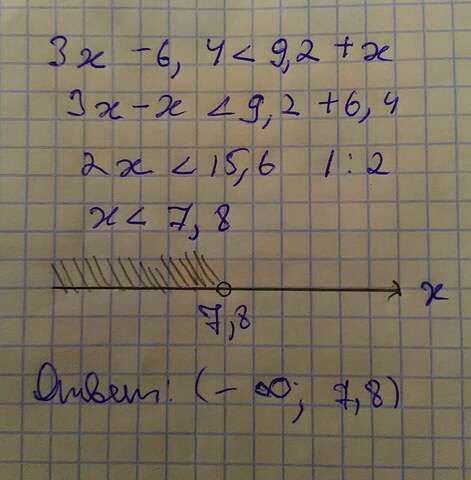 3x - 6,4 < 9,2 + x
3x - x < 9,2 + 6,4
2x < 15,6 | : 2
x < 7,8
x
7,8
Ответ: (- ∞; 7,8)